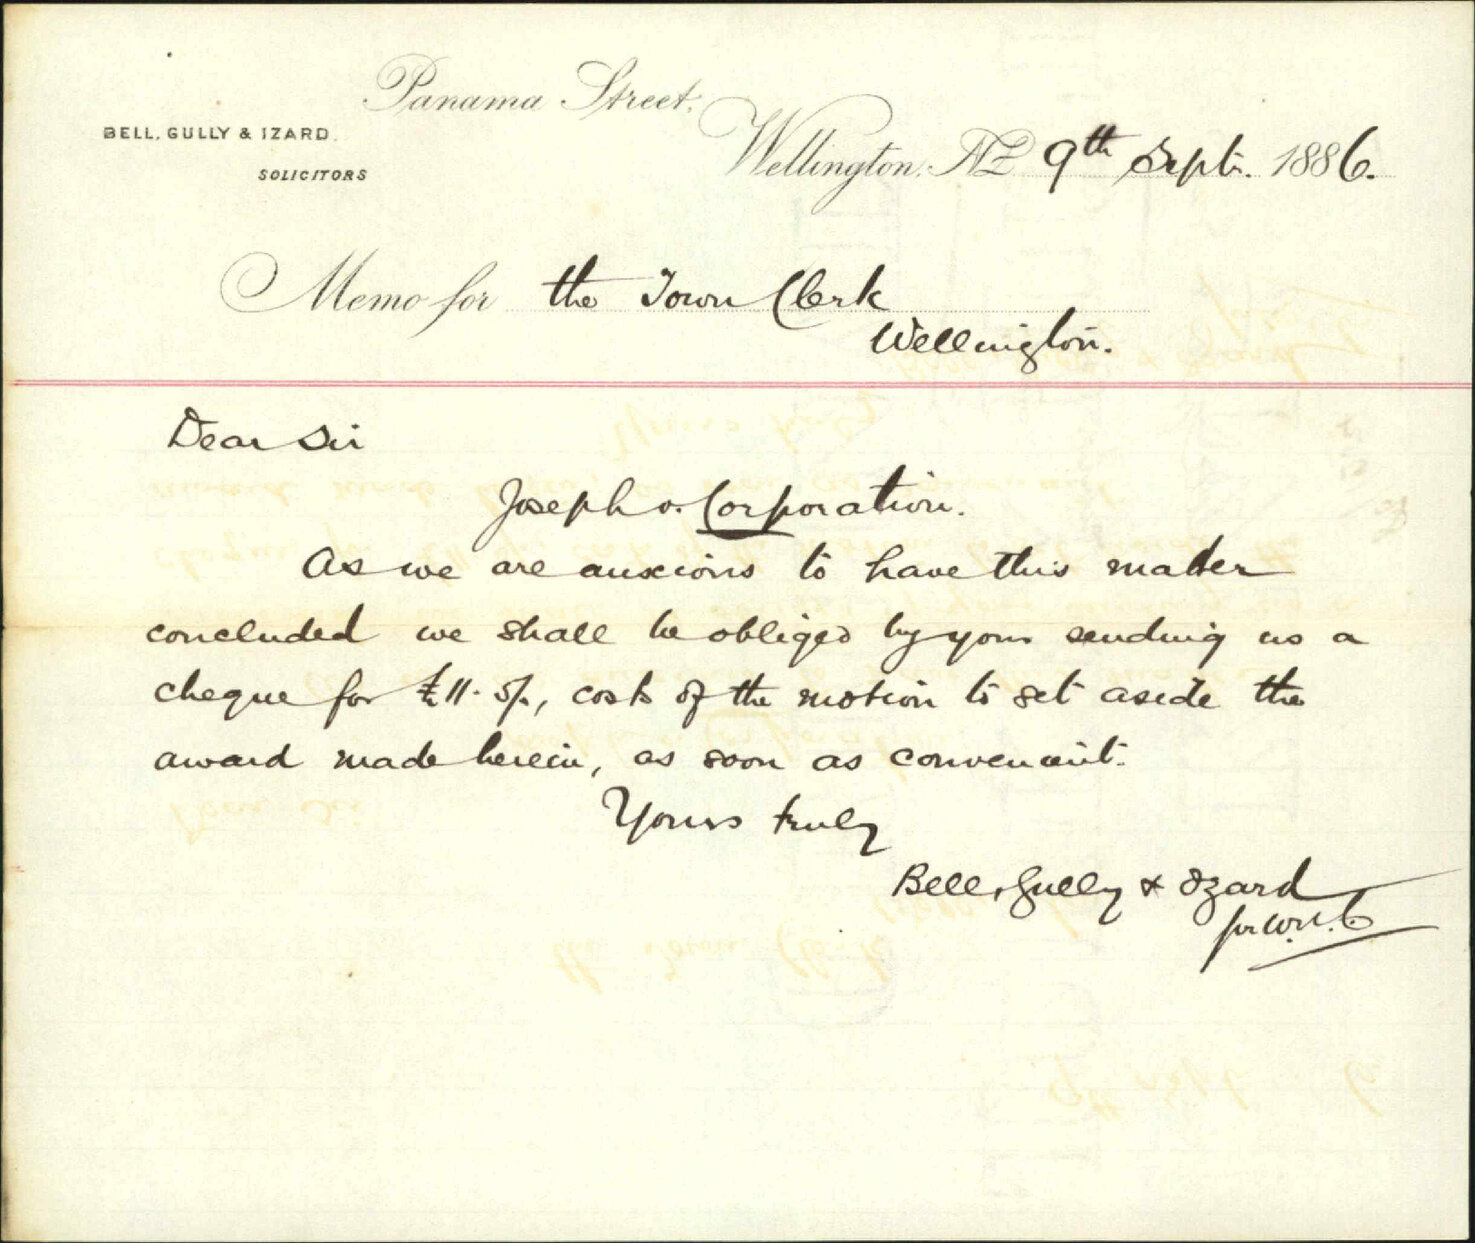 Panama Street,
BELL, GULLY & IZARD.
SOLICITORS
Wellington, NZ 9th Sept. 1886.
Memo for the Town Clerk
Wellington.
Dear Sir
Joseph v. Corporation.
As we are anxious to have this matter
concluded we shall be obliged by your sending us a
cheque for £11. 5/-, costs of the motion to set aside the
award made herein, as soon as convenient.
Yours truly
Bell, Gully & Izard
per